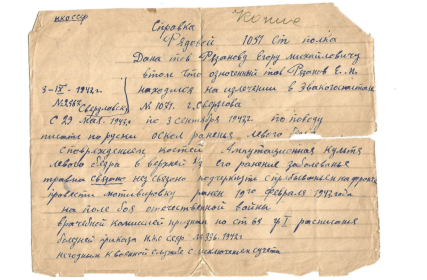 НКО СССР
Копия
Справка
Рядовой 1051 Ст полка
Дана тов Рязанову Егору Михайловичу
в том что означенный тов Рязанов Е. М.
3-IX-1942г находился на излечении в Эвакогоспитале
№2467 Свердловск № 1071. г.
С 29 мая 1942г по 3 сентября 1942г. по поводу
оскол ранения левого
с повреждением костей Ампутационная культя
левого бедра в верхней 1/3 его ранение заболевания
травма связано не связано подчеркнуть с пребыванием на фронте
провести мотивировку ранен 19го февраля 1942года
на поле боя отечественной войны
врачебной комиссией признан по ст 65 гр I расписания
болезней приказа НКО СССР №336. 1942г
негодным к военной службе с исключением с учета